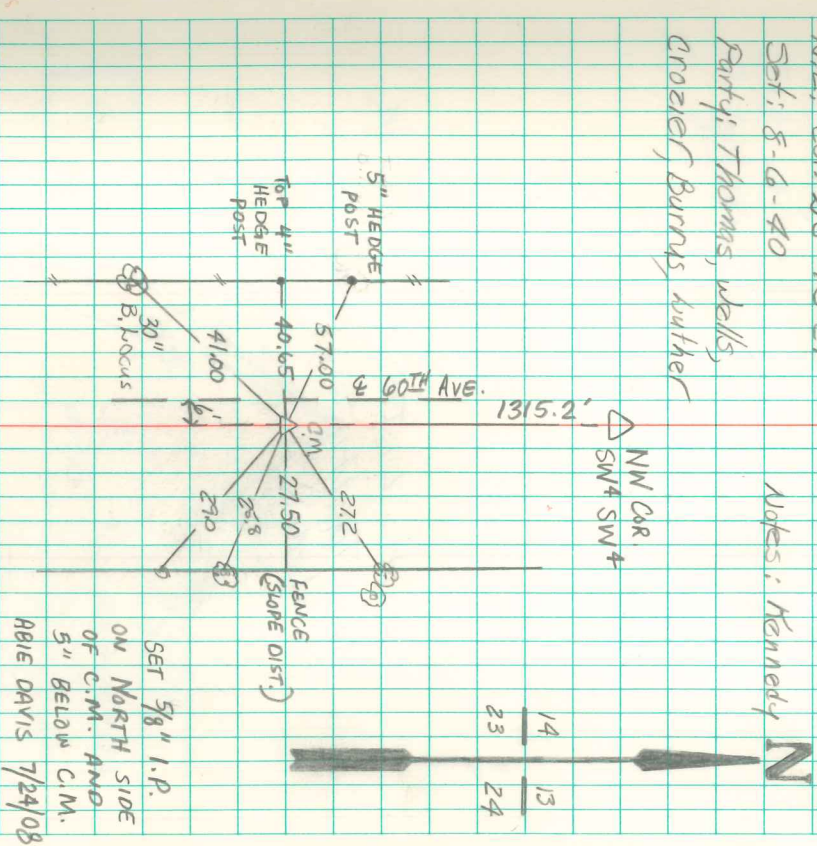 Set: 8-6-40
Party: Thomas, Wells,
Crozier, Burrus, Luther
Notes: Kennedy
N
NW COR.
SW4 SW4
1315.2'
℄ 60TH AVE.
5" HEDGE
POST
TOP 4"
HEDGE
POST
57.00
40.65
41.00
30"
B. LOCUS
6'
C.M.
27.2
27.50
25.8
29.0
FENCE
(SLOPE DIST.)
14 13
23 24
SET 5/8" I.P.
ON NORTH SIDE
OF C.M. AND
5" BELOW C.M.
ABIE DAVIS 7/24/08